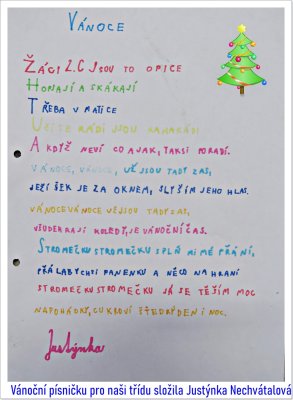 VÁNOCE
ŽÁCI 2.C JSOU TO OPICE
HONAJÍ A SKÁKAJÍ
TŘEBA V MATICE
UČITE RÁDI JSOU KAMARÁDI
A KDYŽ NEVÍ CO A JAK, TAK SI PORADÍ.
VÁNOCE, VÁNOCE, UŽ JSOU TADY ZAS,
JEŽÍŠEK JE ZA OKNEM, SLYŠÍM JEHO HLAS.
VÁNOCE VÁNOCE UŽ JSOU TADY ZAS,
VŠUDE HRAJÍ KOLEDY, JE VÁNOČNÍ ČAS.
STROMEČKU STROMEČKU SPLŇ MI MÉ PŘÁNÍ,
PŘÁLA BYCH SI PANENKU A NĚCO NA HRANÍ
STROMEČKU STROMEČKU JÁ SE TĚŠÍM MOC
NA POHÁDKY, CUKROVÍ ŠTEDRÝ DEN I NOC.
Justýnka
Vánoční písničku pro naši třídu složila Justýnka Nechvátalová